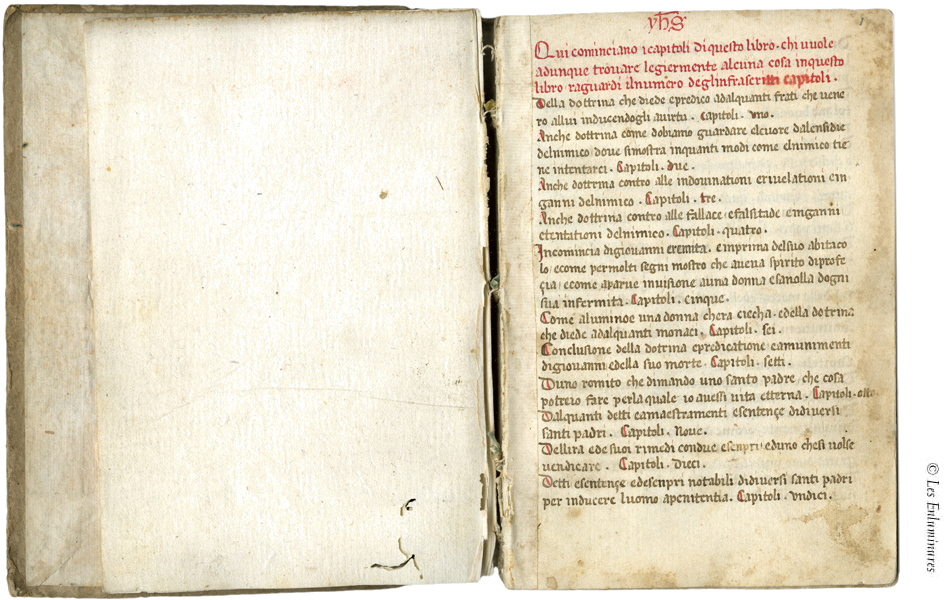 yhs
1
Qui cominciano icapitoli diquesto libro. chi vuole
adunque trovare legiermente alcuna cosa inquesto
libro raguardi ilnumero deglinfrascritti capitoli.
Della dottrina che diede epredico adalquanti frati che vene
ro allui inducendogli avirtu. Capitoli. uno.
Anche dottrina come dobiamo guardare elcuore dalensidie
delnimico dove simostra inquanti modi come elnimico tie
ne intentarci. Capitoli. due.
Anche dottrina contro alle indovinationi erivelationi ein
ganni delnimico. Capitoli. tre.
Anche dottrina contro alle fallace efalsitade einganni
etentationi delnimico. Capitoli. quatro.
Incomincia digiovanni eremita. eimprima delsuo abitaco
lo ecome permolti segni mostro che aveva spirito diprofe
çia ecome aparve invisione auna donna esanolla dogni
sua infermita. Capitoli. cinque.
Come alumino una donna chera ciecha. edella dotrina
che diede adalquanti monaci. Capitoli. sei.
Conclusione della dotrina epredicatione eamunimenti
digiovanni edella suo morte. Capitoli. setti.
Duno romito che dimando uno santo padre che cosa
potreio fare perla quale io avessi vita etterna. Capitoli. otto
Dalquanti detti eamaestramenti esentençe didiversi
santi padri. Capitoli. Nove.
Dellira ede suoi rimedi condue esenpri eduno chesi volse
vendicare. Capitoli. Dieci.
Detti esentençe edesenpri notabili didiversi santi padri
per inducere luomo apenitentia. Capitoli. undici.
© Les Enluminures